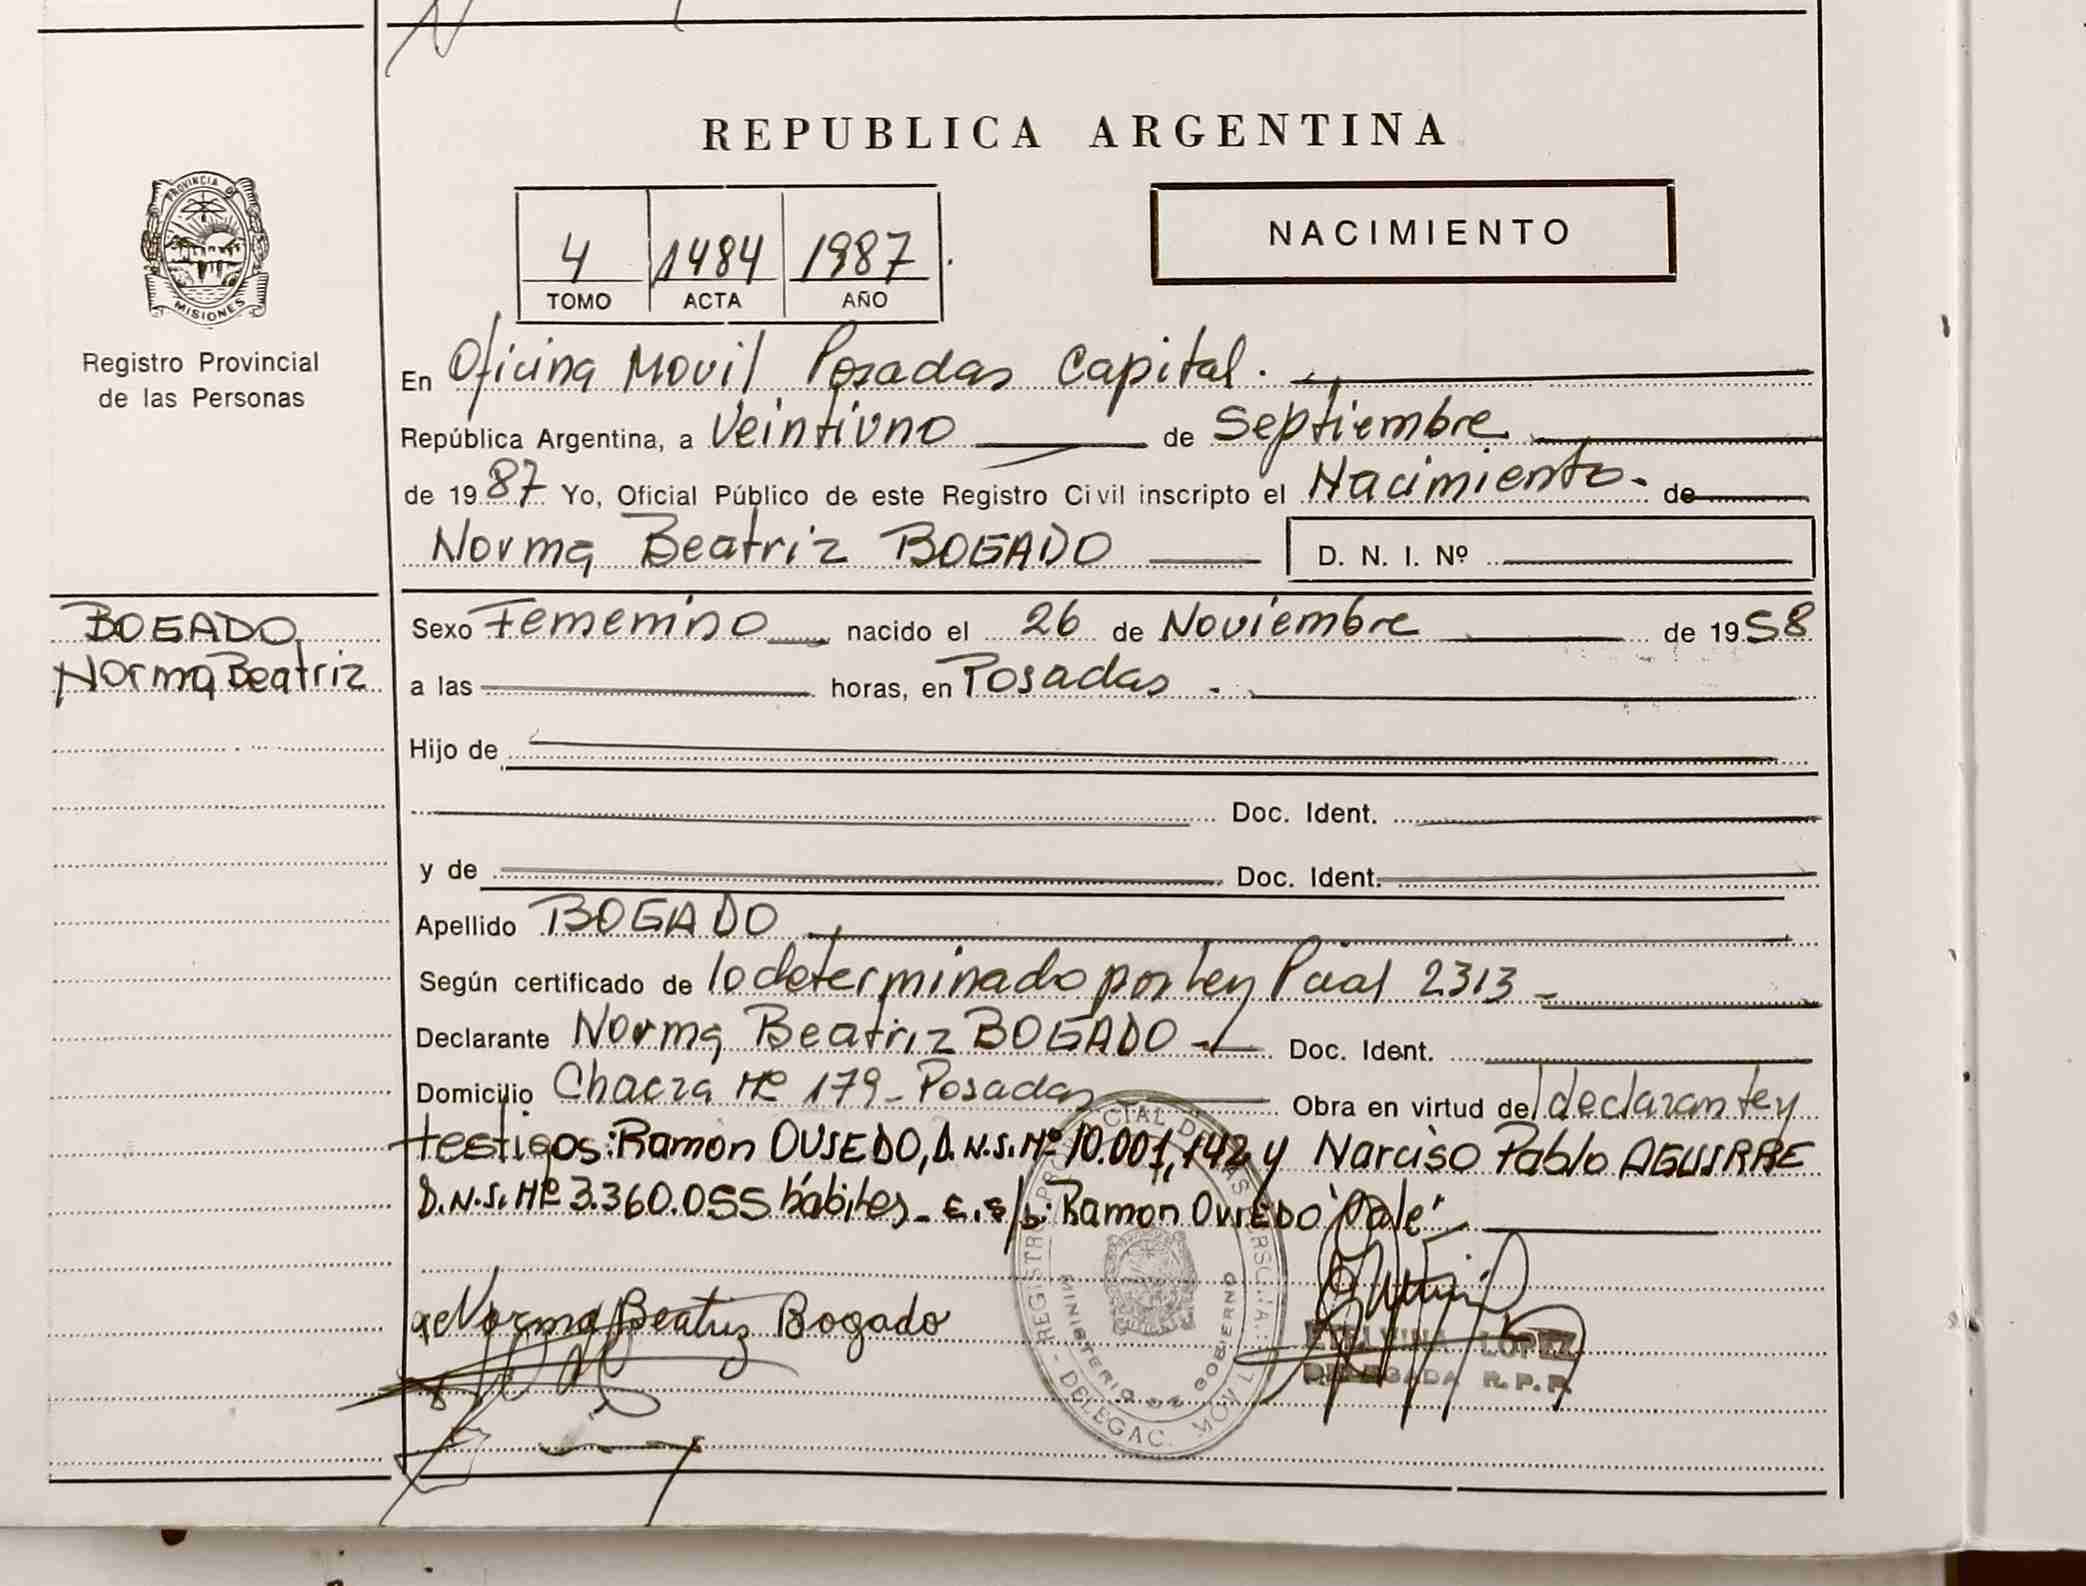 REPUBLICA ARGENTINA
PROVINCIA DE
MISIONES
Registro Provincial
de las Personas
4 1484 1987
TOMO ACTA AÑO
NACIMIENTO
En Oficina Movil Posadas Capital.
República Argentina, a Veintiuno de Septiembre
de 1987 Yo, Oficial Público de este Registro Civil inscripto el Nacimiento. de
Norma Beatriz BOGADO D. N. I. Nº
BOGADO
Norma Beatriz
Sexo Femenino nacido el 26 de Noviembre de 1958
a las horas, en Posadas.
Hijo de
Doc. Ident.
y de Doc. Ident.
Apellido BOGADO
Según certificado de lo determinado por Ley Pcial 2313
Declarante Norma Beatriz BOGADO Doc. Ident.
Domicilio Chacra Nº 179 - Posadas Obra en virtud del declarante y
testigos: Ramón OVIEDO, D.N.I. Nº 10.001.142 y Narciso Pablo AGUIRRE
D.N.I. Nº 3.360.055 hábiles - E.s/b: Ramón OVIEDO "Vale"
Norma Beatriz Bogado
MINISTERIO DE GOBIERNO
DELEGAC. MOVIL
LOPEZ
DELEGADA R.P.P.